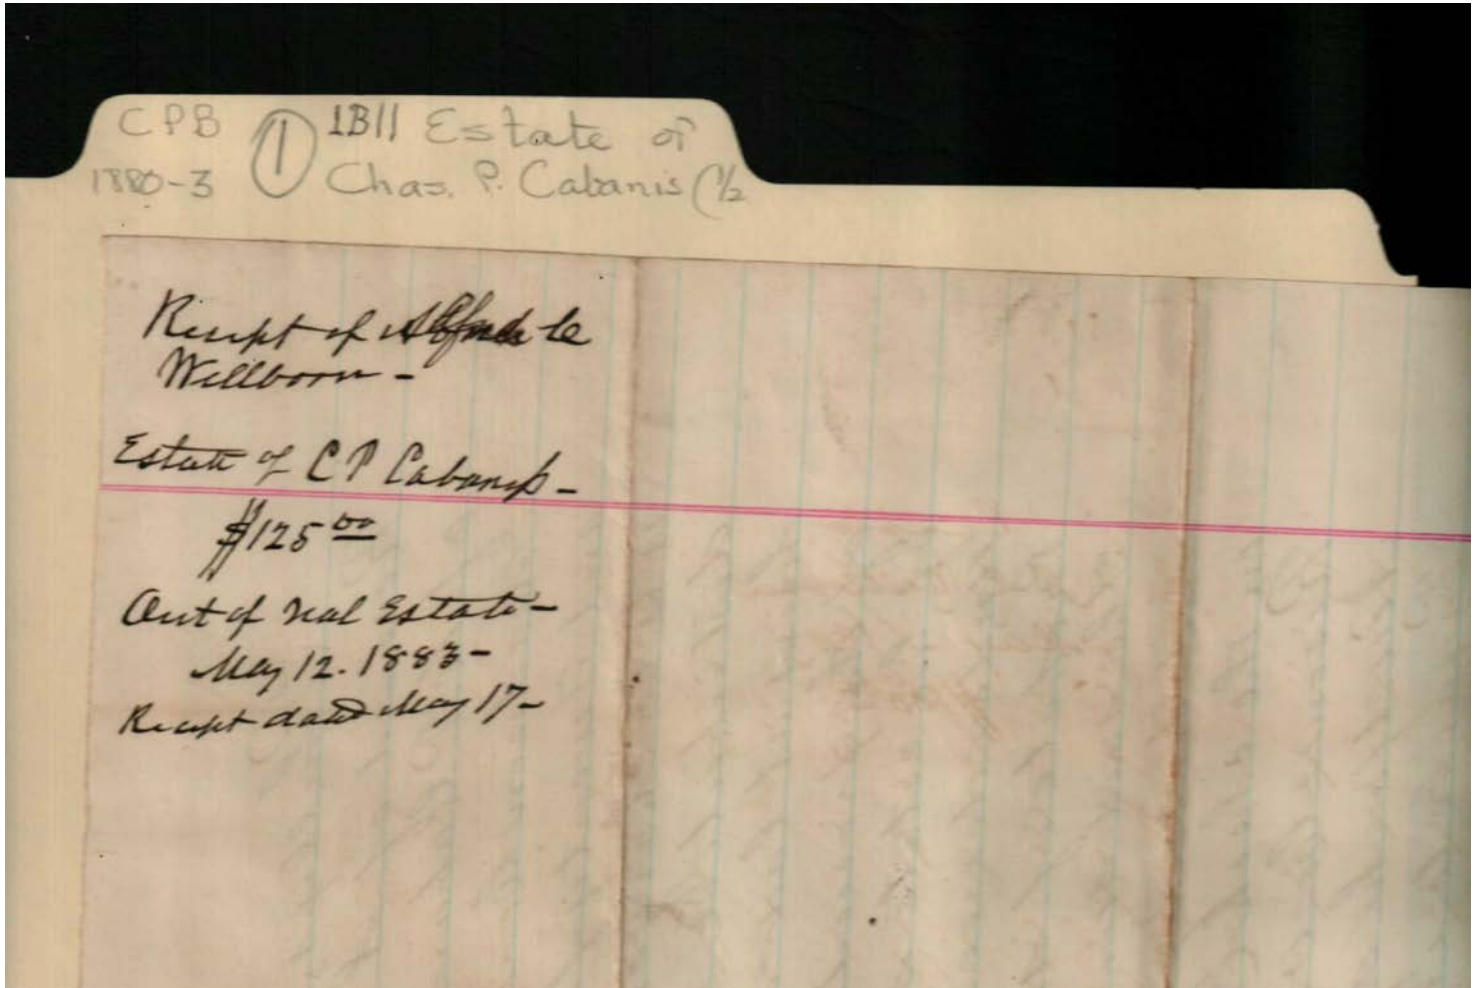 CPB
1880-3
1
1B11 Estate of
Chas. P. Cabanis (1/2
Receipt of
Wellborn -
Estate of C P Cabaniss -
$125 00
Out of real Estate -
May 12. 1883 -
Receipt dated May 17 -